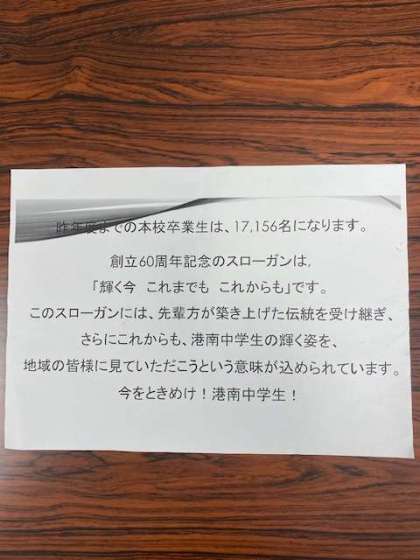 昨年度までの本校卒業生は、17,156名になります。
創立60周年記念のスローガンは,
「輝く今　これまでも　これからも」です。
このスローガンには、先輩方が築き上げた伝統を受け継ぎ、
さらにこれからも、港南中学生の輝く姿を、
地域の皆様に見ていただこうという意味が込められています。
今をときめけ！港南中学生！